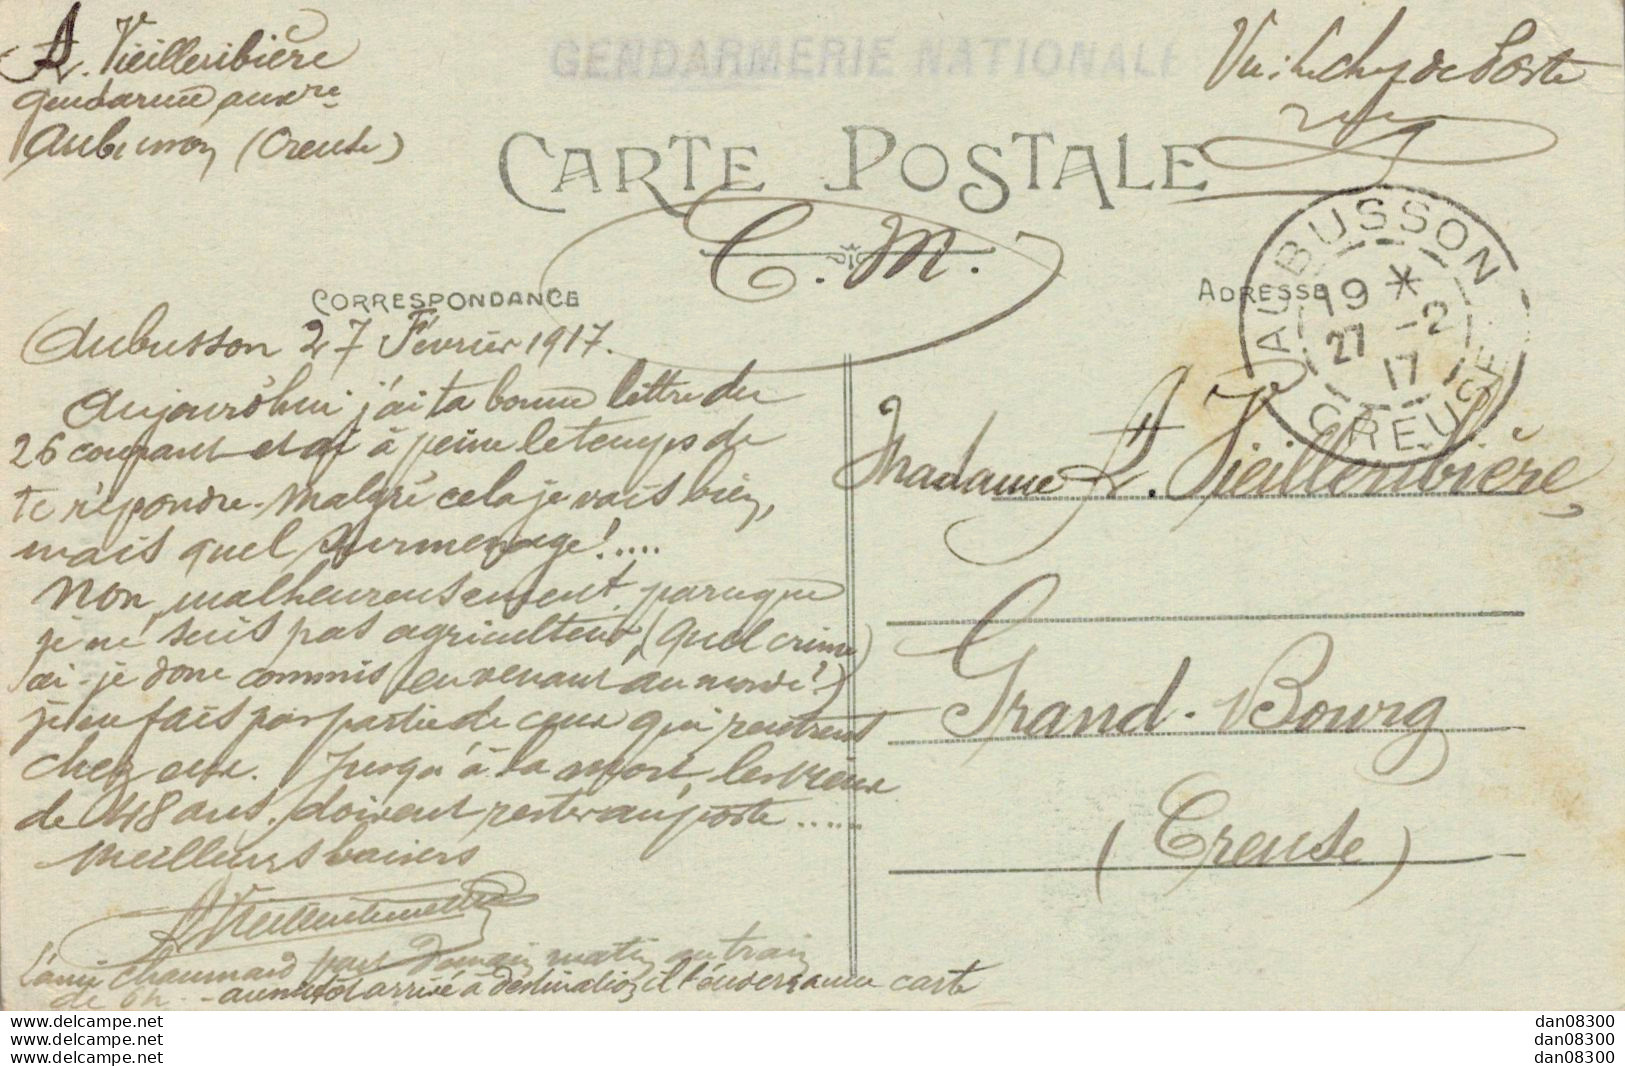 A. Vieilleribière
gendarme auxre
Aubusson (Creuse)
GENDARMERIE NATIONALE
Vu: Le chef de Poste
CARTE POSTALE
C. M.
CORRESPONDANCE
ADRESSE
AUBUSSON
19 *
27 -2
17
CREUSE
Aubusson 27 Février 1917.
Aujourd'hui j'ai ta bonne lettre du
26 courant et ai à peine le temps de
te répondre. Malgré cela je vais bien,
mais quel surmenage!.....
Non, malheureusement parceque
je ne suis pas agriculteur, (quel crime
ai-je donc commis en venant au monde?)
je ne fais pas partie de ceux qui rentrent
chez eux. Jusqu'à la mort, les vieux
de 48 ans, doivent rester au poste.....
Meilleurs baisers
A Vieilleribière
L'ami Chaumard part demain matin au train
de 6h. - aussitôt arrivé à destination il t'enverra une carte
Madame A. Vieilleribière
Grand-Bourg
(Creuse)
www.delcampe.net
www.delcampe.net
www.delcampe.net
dan08300
dan08300
dan08300